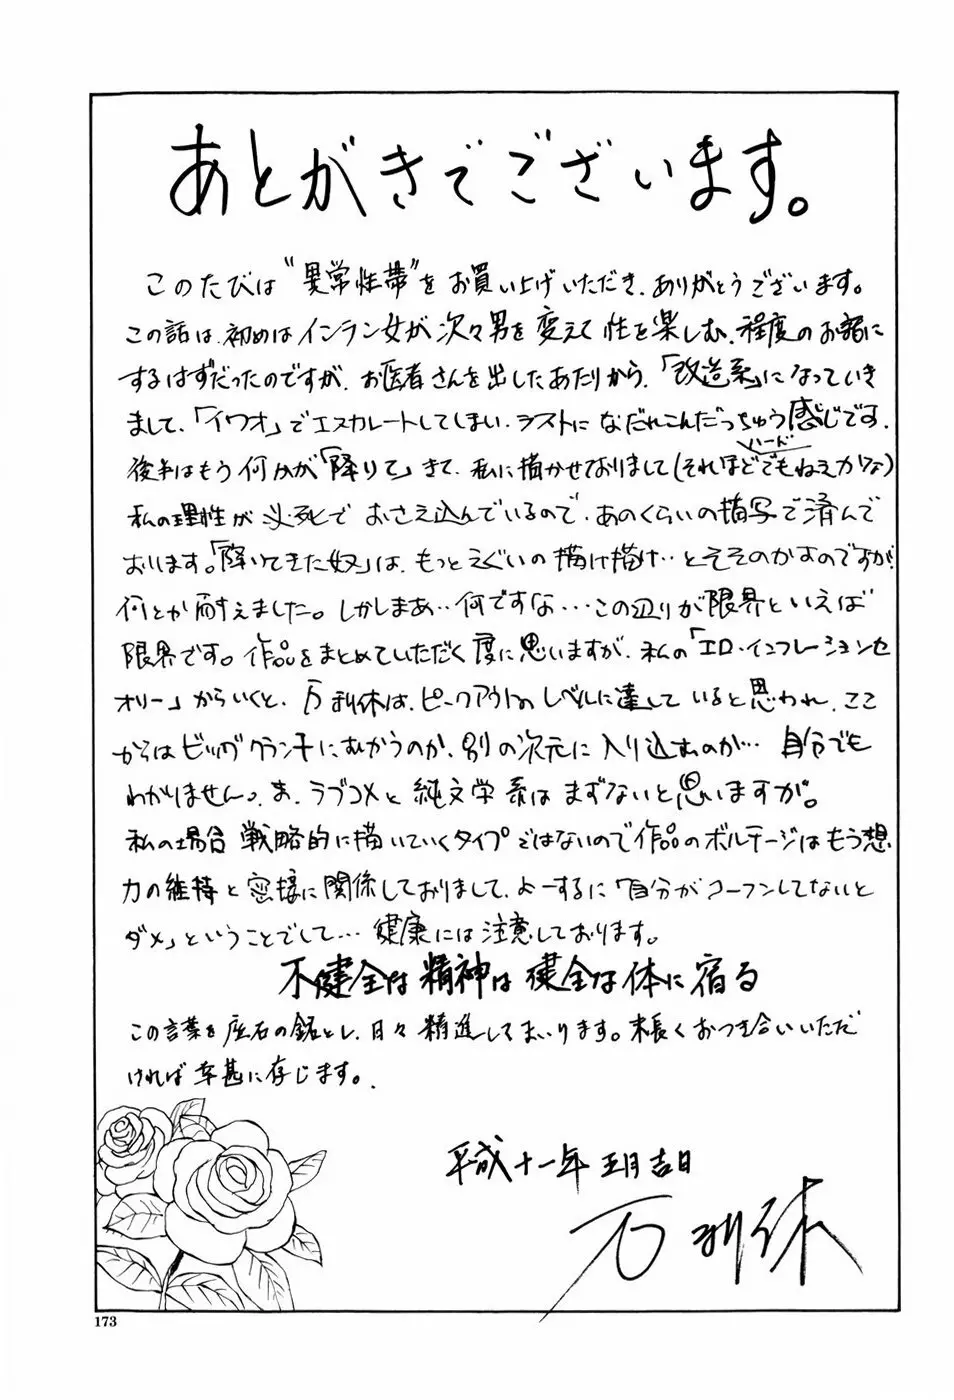 あとがきでございます。
このたびは“異常性帯”をお買い上げいただき、ありがとうございます。
この話は、初めはインラン女が次々男を変えて性を楽しむ、程度のお話に
するはずだったのですが、お医者さんを出したあたりから、「改造系」になっていき
まして、「イワオ」でエスカレートしてしまい、ラストになだれこんだっちゅう感じです。
ハード
後半はもう何かが「降りて」きて、私に描かせておりまして(それほどでもねえかな)
私の理性が必死でおさえ込んでいるので、あのくらいの描写で済んで
おります。「降りてきた奴」は、もっとえぐいの描け描け‥とそそのかすのですが、
何とか耐えました。しかしまあ‥何ですな‥‥この辺りが限界といえば
限界です。作品をまとめていただく度に思いますが、私の「エロ・インフレーションセ
オリー」からいくと、万利休は、ピークアウトのレベルに達していると思われ、ここ
からはビッグクランチにむかうのか、別の次元に入り込むのか… 自分でも
わかりません。ま、ラブコメと純文学系はまずないと思いますが。
私の場合戦略的に描いていくタイプではないので作品のボルテージはもう想
力の維持と密接に関係しておりまして、よーするに「自分がコーフンしてないと
ダメ」ということでして… 健康には注意しております。
不健全な精神は健全な体に宿る
この言葉を座右の銘とし、日々精進してまいります。末長くおつき合いいただ
ければ幸甚に存じます。
平成十一年五月吉日
万利休
173